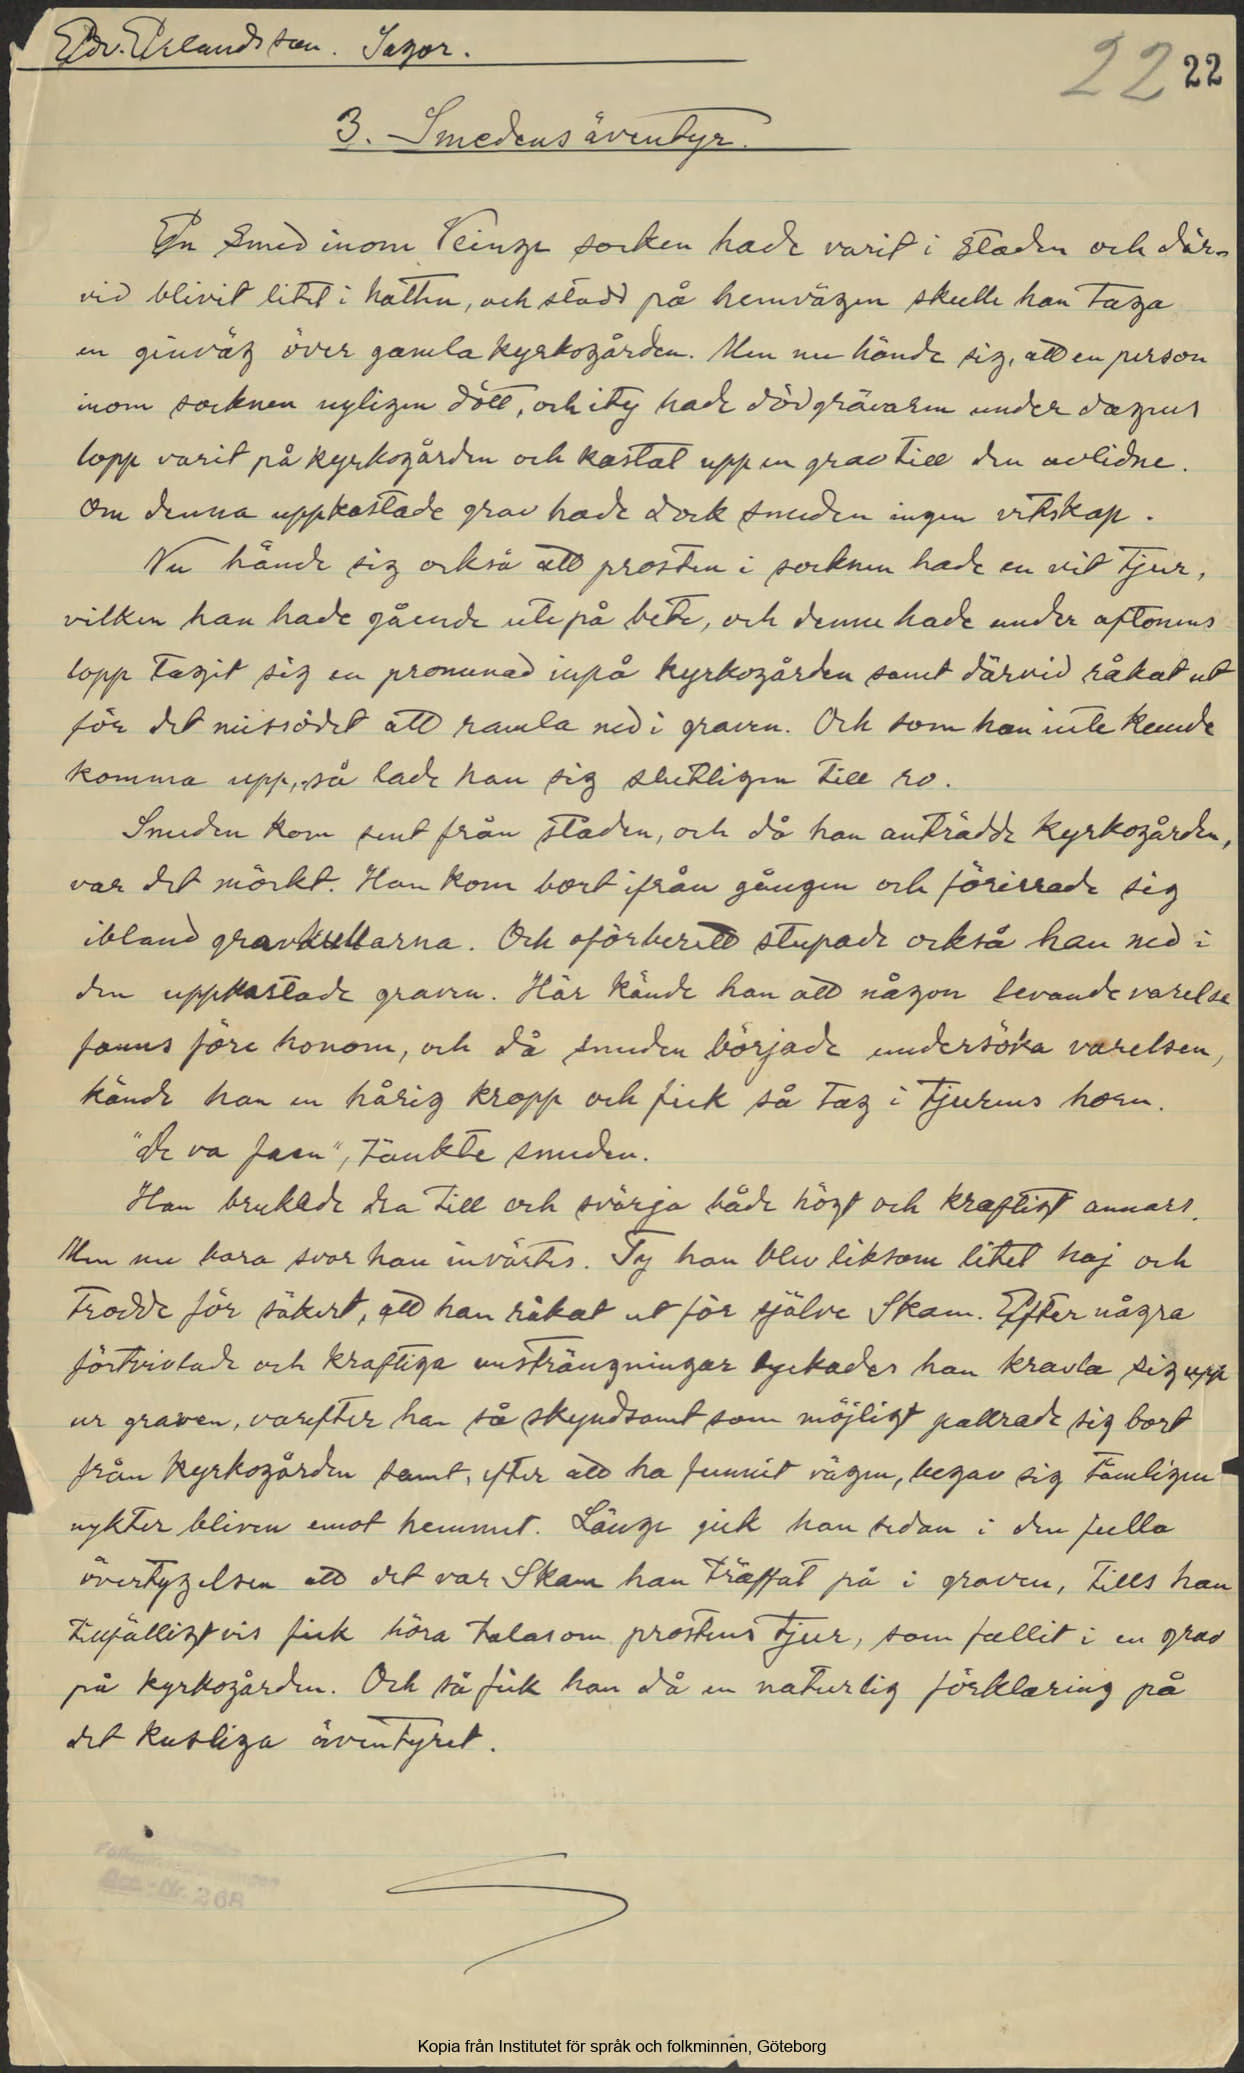 Edv. Erlandsson. Sagor.
22 22
3. Smedens äventyr.
En smed inom Veinge socken hade varit i staden och där-
vid blivit litet i hatten, och stadd på hemvägen skulle han taga
en ginväg över gamla kyrkogården. Men nu hände sig, att en person
inom socknen nyligen dött, och ity hade dödgrävaren under dagens
lopp varit på kyrkogården och kastat upp en grav till den avlidne.
Om denna uppkastade grav hade dock smeden ingen vetskap.
Nu hände sig också att prosten i socknen hade en vit tjur,
vilken han hade gående ute på bete, och denne hade under aftonens
lopp tagit sig en promenad inpå kyrkogården samt därvid råkat ut
för det missödet att ramla ned i graven. Och som han inte kunde
komma upp, så lade han sig slutligen till ro.
Smeden kom sent från staden, och då han anträdde kyrkogården,
var det mörkt. Han kom bort ifrån gången och förirrade sig
ibland gravkullarna. Och oförberett stupade också han ned i
den uppkastade graven. Här kände han att någon levande varelse
fanns före honom, och då smeden började undersöka varelsen,
kände han en hårig kropp och fick så tag i tjurens horn.
"De va faen", tänkte smeden.
Han brukade dra till och svärja både högt och kraftigt annars.
Men nu bara svor han invärtes. Ty han blev liksom litet haj och
trodde för säkert, att han råkat ut för själve Skam. Efter några
förtvivlade och kraftiga ansträngningar lyckades han kravla sig upp
ur graven, varefter han så skyndsamt som möjligt pallrade sig bort
från kyrkogården samt, efter att ha funnit vägen, begav sig tämligen
nykter bliven emot hemmet. Länge gick han sedan i den fulla
övertygelsen att det var Skam han träffat på i graven, tills han
tillfälligtvis fick höra talas om prostens tjur, som fallit i en grav
på kyrkogården. Och så fick han då en naturlig förklaring på
det kusliga äventyret.
Acc.-Nr. 268
Kopia från Institutet för språk och folkminnen, Göteborg